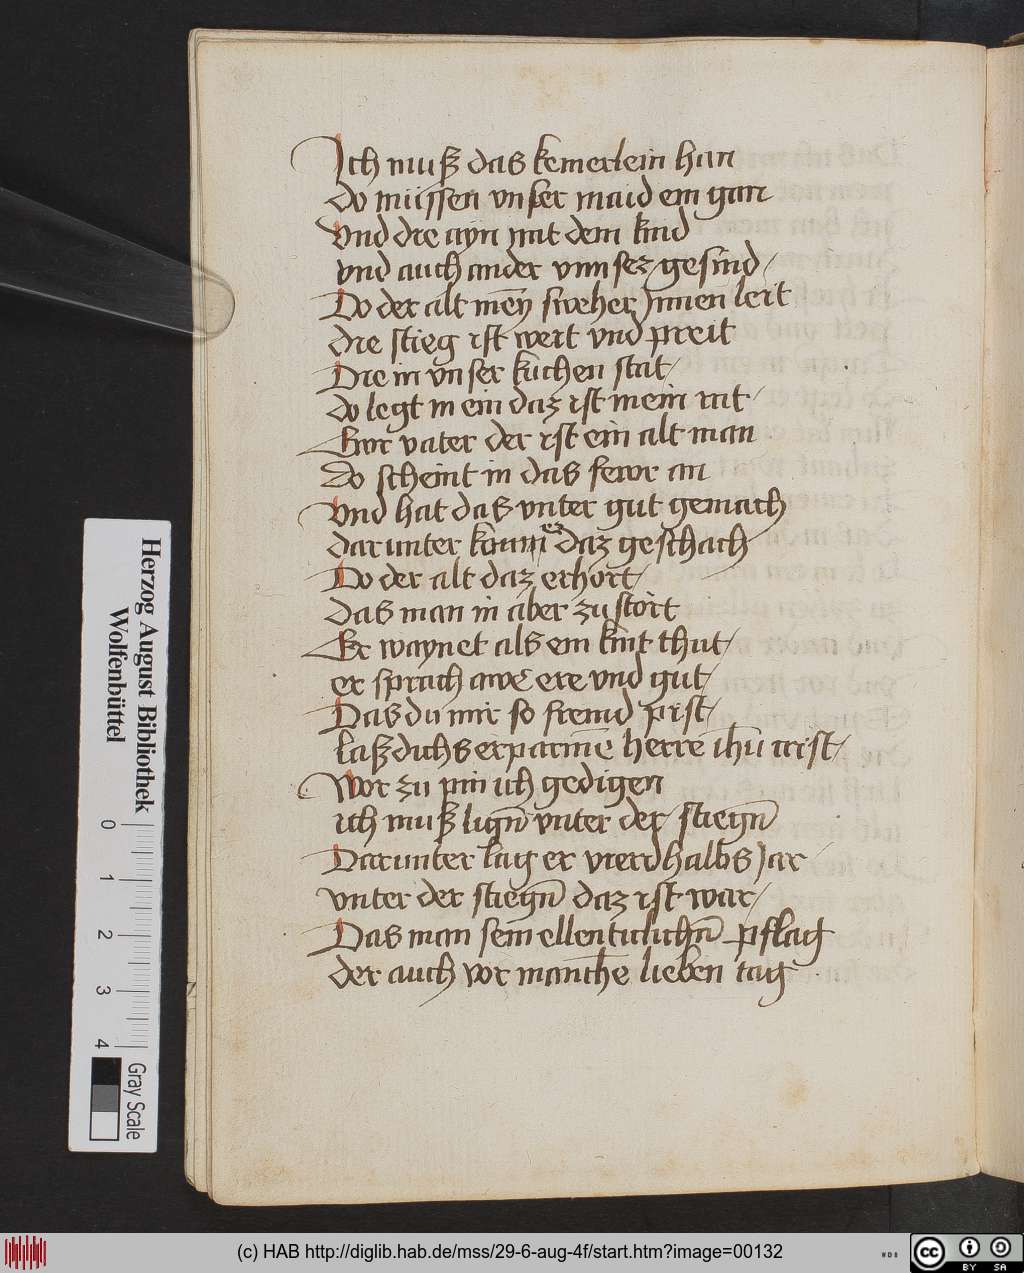 Ich muß das kemerlein han
do müssen vnser maid ein gan
Vnd die ayn mit dem kind
vnd auch ander vnnsez gesind
Do der alt mein sweher Jnnen leit
die stieg ist weit vnd preit
Die in vnser kuchen stat
do legt in ein daz ist mein rat
Ewr vater der ist ein alt man
Do scheint in das fewr an
Vnd hat das vnter gut gemach
dar unter kaum ez daz geschach
Do der alt daz erhört
das man in aber zu stört
Er waynet als ein kint thut
er sprach awe ere vnd gut
Das du mir so fremd pist
laß dichs erparmē herre ihū crist
Wor zu pin ich gedigen
ich muß lign̄ vnter der stiegn̄
Darunter lag er vierdhalbs Jar
vnter der stiegn̄ daz ist war
Das man sein ellenticlichn̄ pflag
der auch vor manchē lieben tag
Herzog August Bibliothek
Wolfenbüttel
0 1 2 3 4
Gray Scale
(c) HAB http://diglib.hab.de/mss/29-6-aug-4f/start.htm?image=00132
WDB
cc BY SA